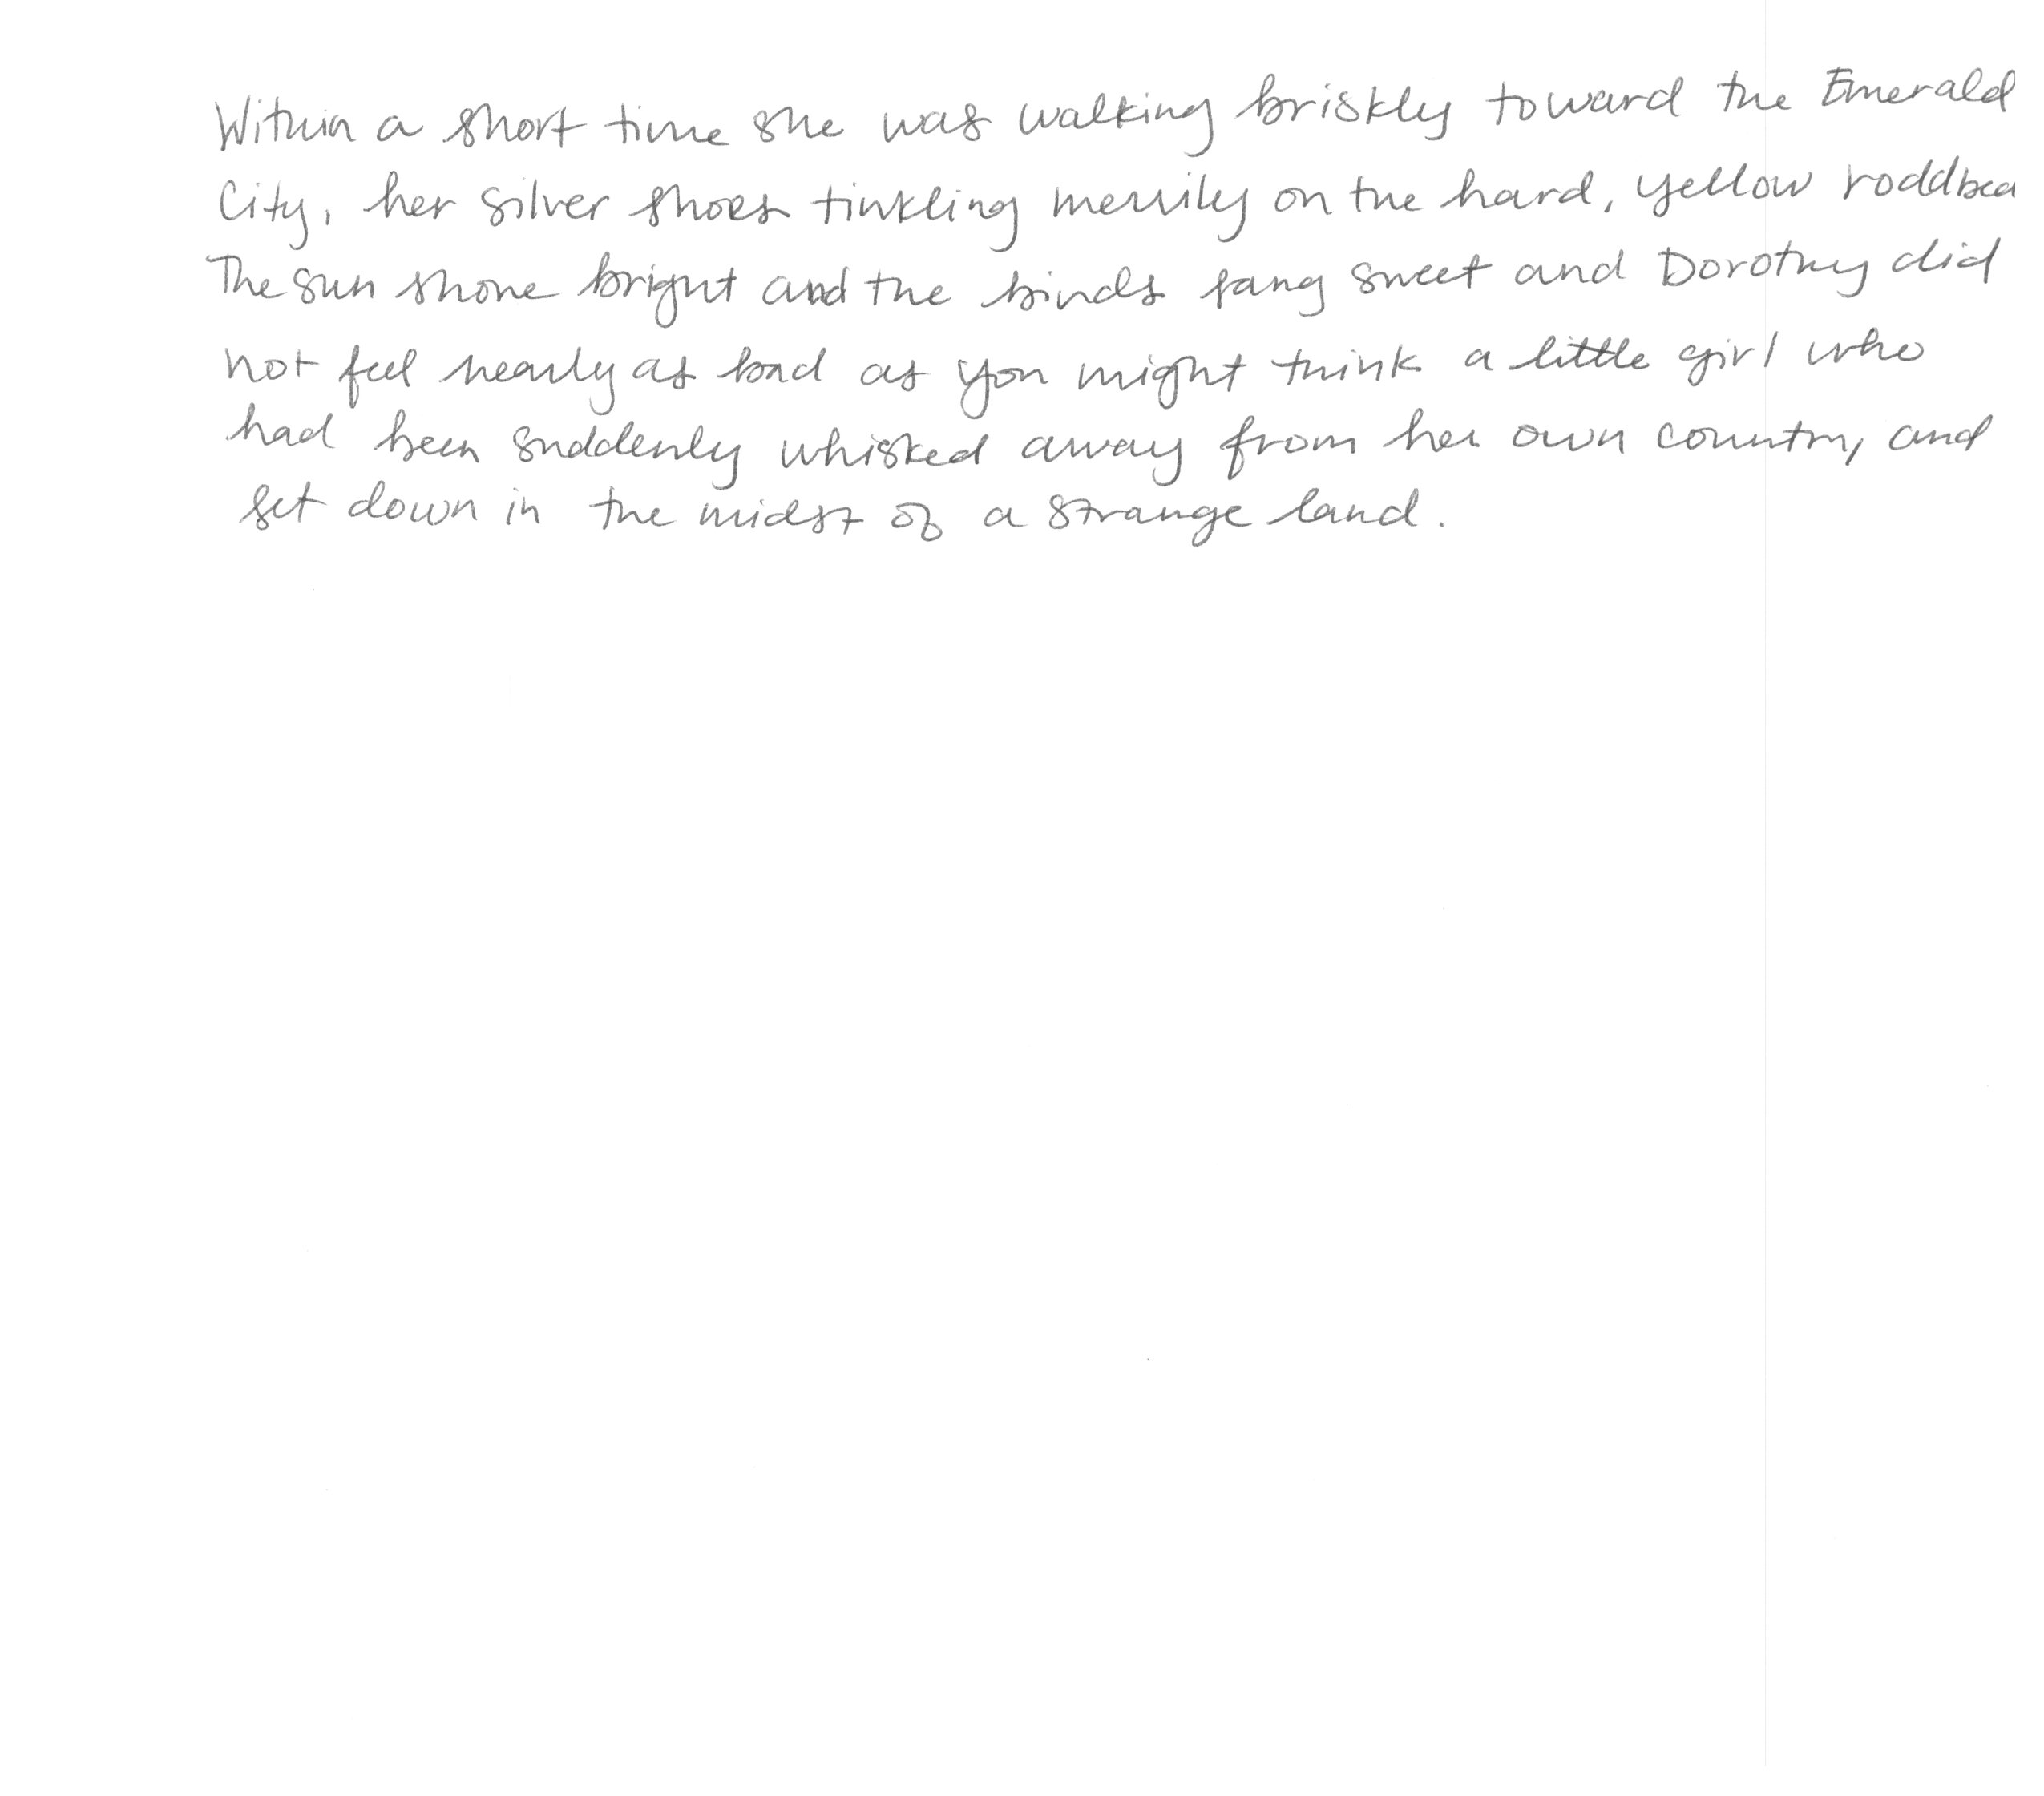 Within a short time she was walking briskly toward the Emerald
City, her silver shoes tinkling merrily on the hard, yellow roddbea
The sun shone bright and the birds sang sweet and Dorothy did
not feel nearly as bad as you might think a little girl who
had been suddenly whisked away from her own country, and
set down in the midst of a strange land.